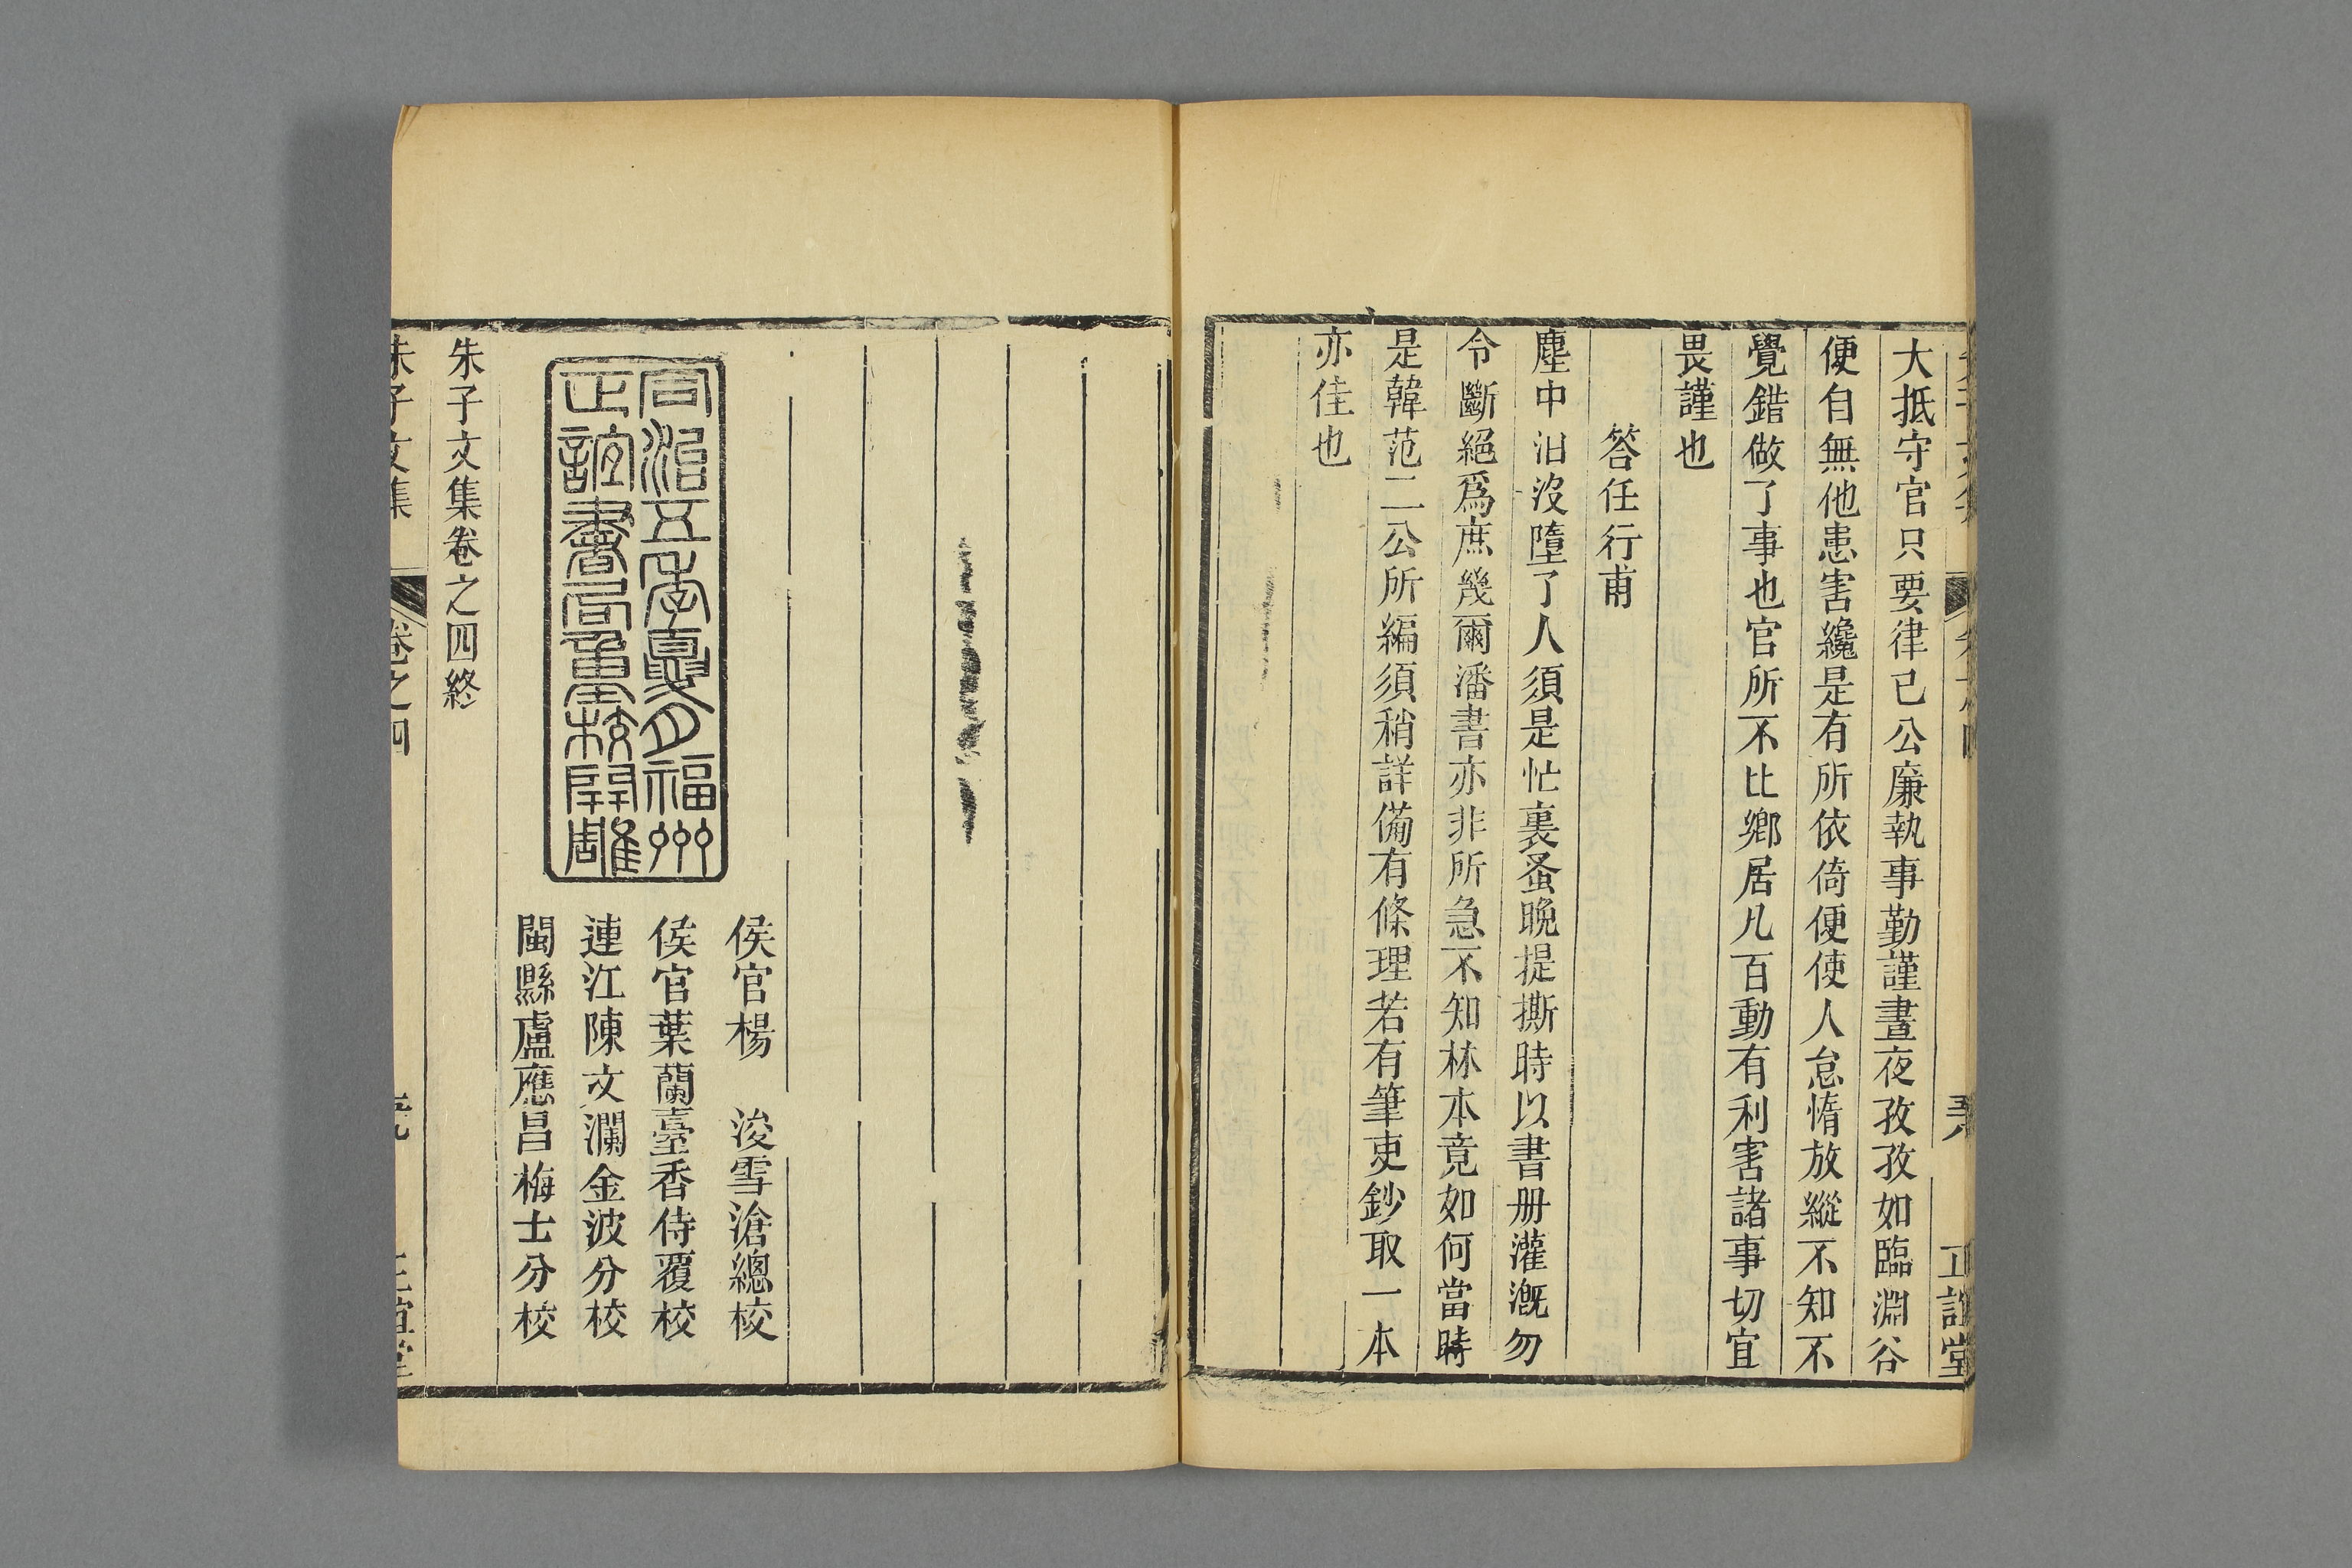 大抵守官只要律己公廉執事勤謹晝夜孜孜如臨淵谷
便自無他患害纔是有所依倚便使人怠惰放縱不知不
覺錯做了事也官所不比鄉居凡百動有利害諸事切宜
畏謹也
答任行甫
塵中汩沒墮了人須是忙裏蚤晚提撕時以書册灌漑勿
令斷絕爲庶幾爾潘書亦非所急不知林本竟如何當時
是韓范二公所編須稍詳備有條理若有筆吏鈔取一本
亦佳也
正誼堂
同治五年夏月福州
正誼書局重校開雕
侯官楊 浚雪滄總校
侯官葉蘭臺香侍覆校
連江陳文瀾金波分校
閩縣盧應昌梅士分校
朱子文集卷之四終
朱子文集 卷之四